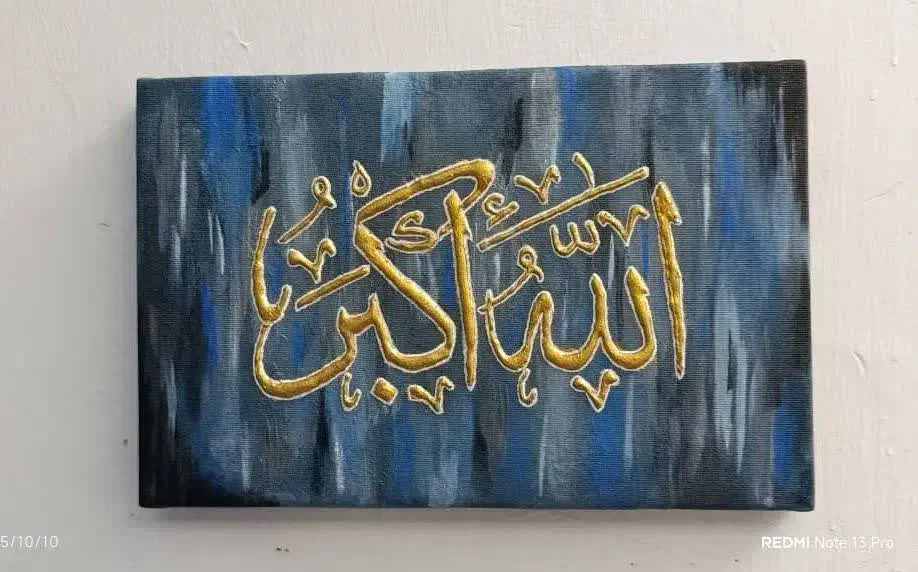 اللّٰهُ أَكْبَر
5/10/10
REDMI Note 13 Pro